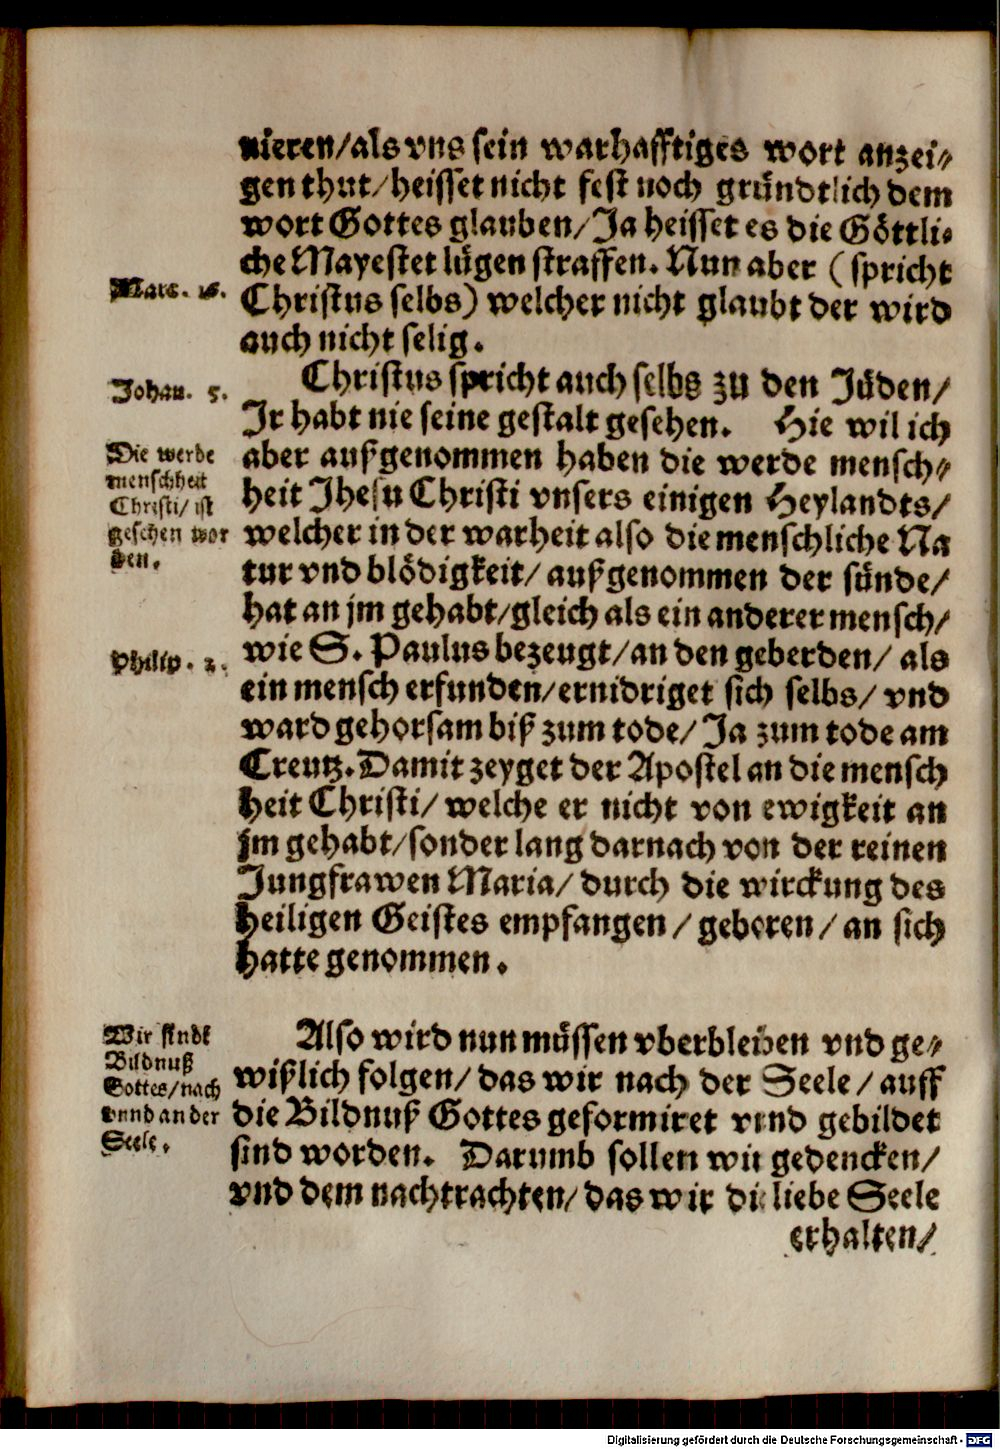 nieren/als vns sein warhafftiges wort anzei⸗
gen thut/heisset nicht fest noch gründtlich dem
wort Gottes glauben/Ja heisset es die Göttli⸗
che Mayestet lügen straffen. Nun aber (spricht
Marc. 16.
Christus selbs) welcher nicht glaubt der wird
auch nicht selig.
Johan. 5.
Christus spricht auch selbs zu den Jüden/
Jr habt nie seine gestalt gesehen. Hie wil ich
Die werde
menschheit
Christi/ist
gesehen wor
den.
aber außgenommen haben die werde mensch⸗
heit Jhesu Christi vnsers einigen Heylandts/
welcher in der warheit also die menschliche Na
tur vnd blödigkeit/außgenommen der sünde/
hat an jm gehabt/gleich als ein anderer mensch/
Philip. 2.
wie S. Paulus bezeugt/an den geberden/als
ein mensch erfunden/ernidriget sich selbs/vnd
ward gehorsam biß zum tode/Ja zum tode am
Creutz. Damit zeyget der Apostel an die mensch
heit Christi/welche er nicht von ewigkeit an
jm gehabt/sonder lang darnach von der reinen
Jungfrawen Maria/durch die wirckung des
heiligen Geistes empfangen/geboren/an sich
hatte genommen.
Wir sindt
Bildnuß
Gottes/nach
vnnd an der
Seele.
Also wird nun müssen vberbleiben vnd ge⸗
wißlich folgen/das wir nach der Seele/auff
die Bildnuß Gottes geformiret vnnd gebildet
sind worden. Darumb sollen wir gedencken/
vnd dem nachtrachten/das wir die liebe Seele
erhalten/
Digitalisierung gefördert durch die Deutsche Forschungsgemeinschaft - DFG